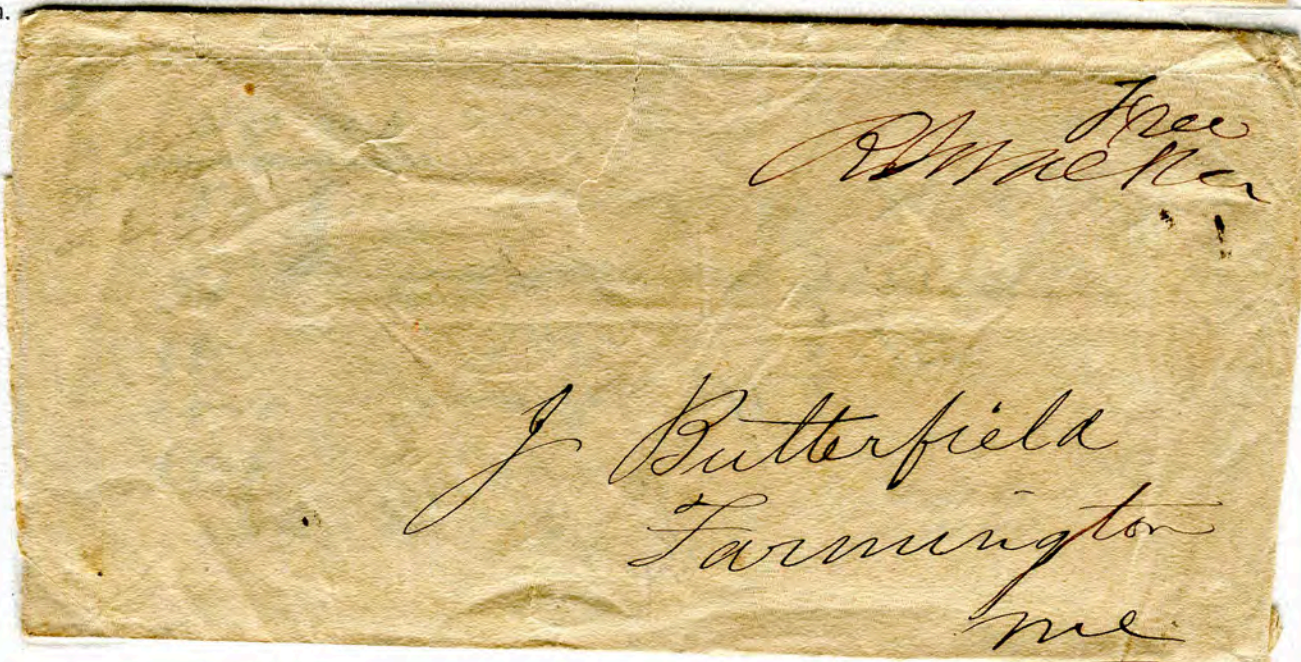 Free
J Butterfield
Farmington
me